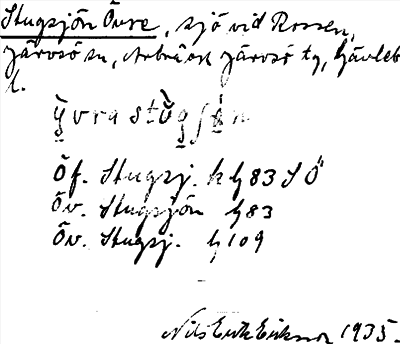 Stugsjön Övre, sjö vid Rossen,
Järvsö sn, Arbrå och Järvsö tg, Gävleb
l.
Öf. Stugsj. k G 83 S Ö
Öv. Stugsjön G 83
Öv. Stugsj. G 109
Nils Erik Eriksson 1935.